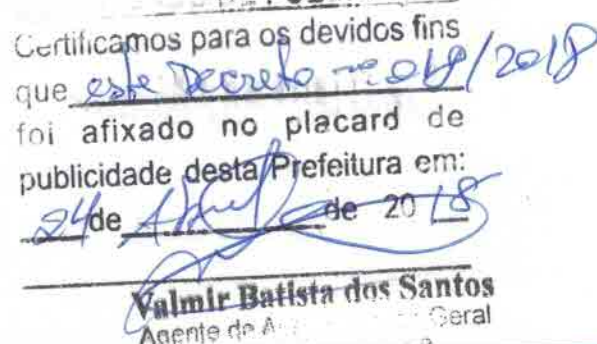 Certificamos para os devidos fins
que este Decreto nº 069/2018
foi afixado no placard de
publicidade desta Prefeitura em:
24 de Abril de 2018
Valmir Batista dos Santos
Agente de Geral